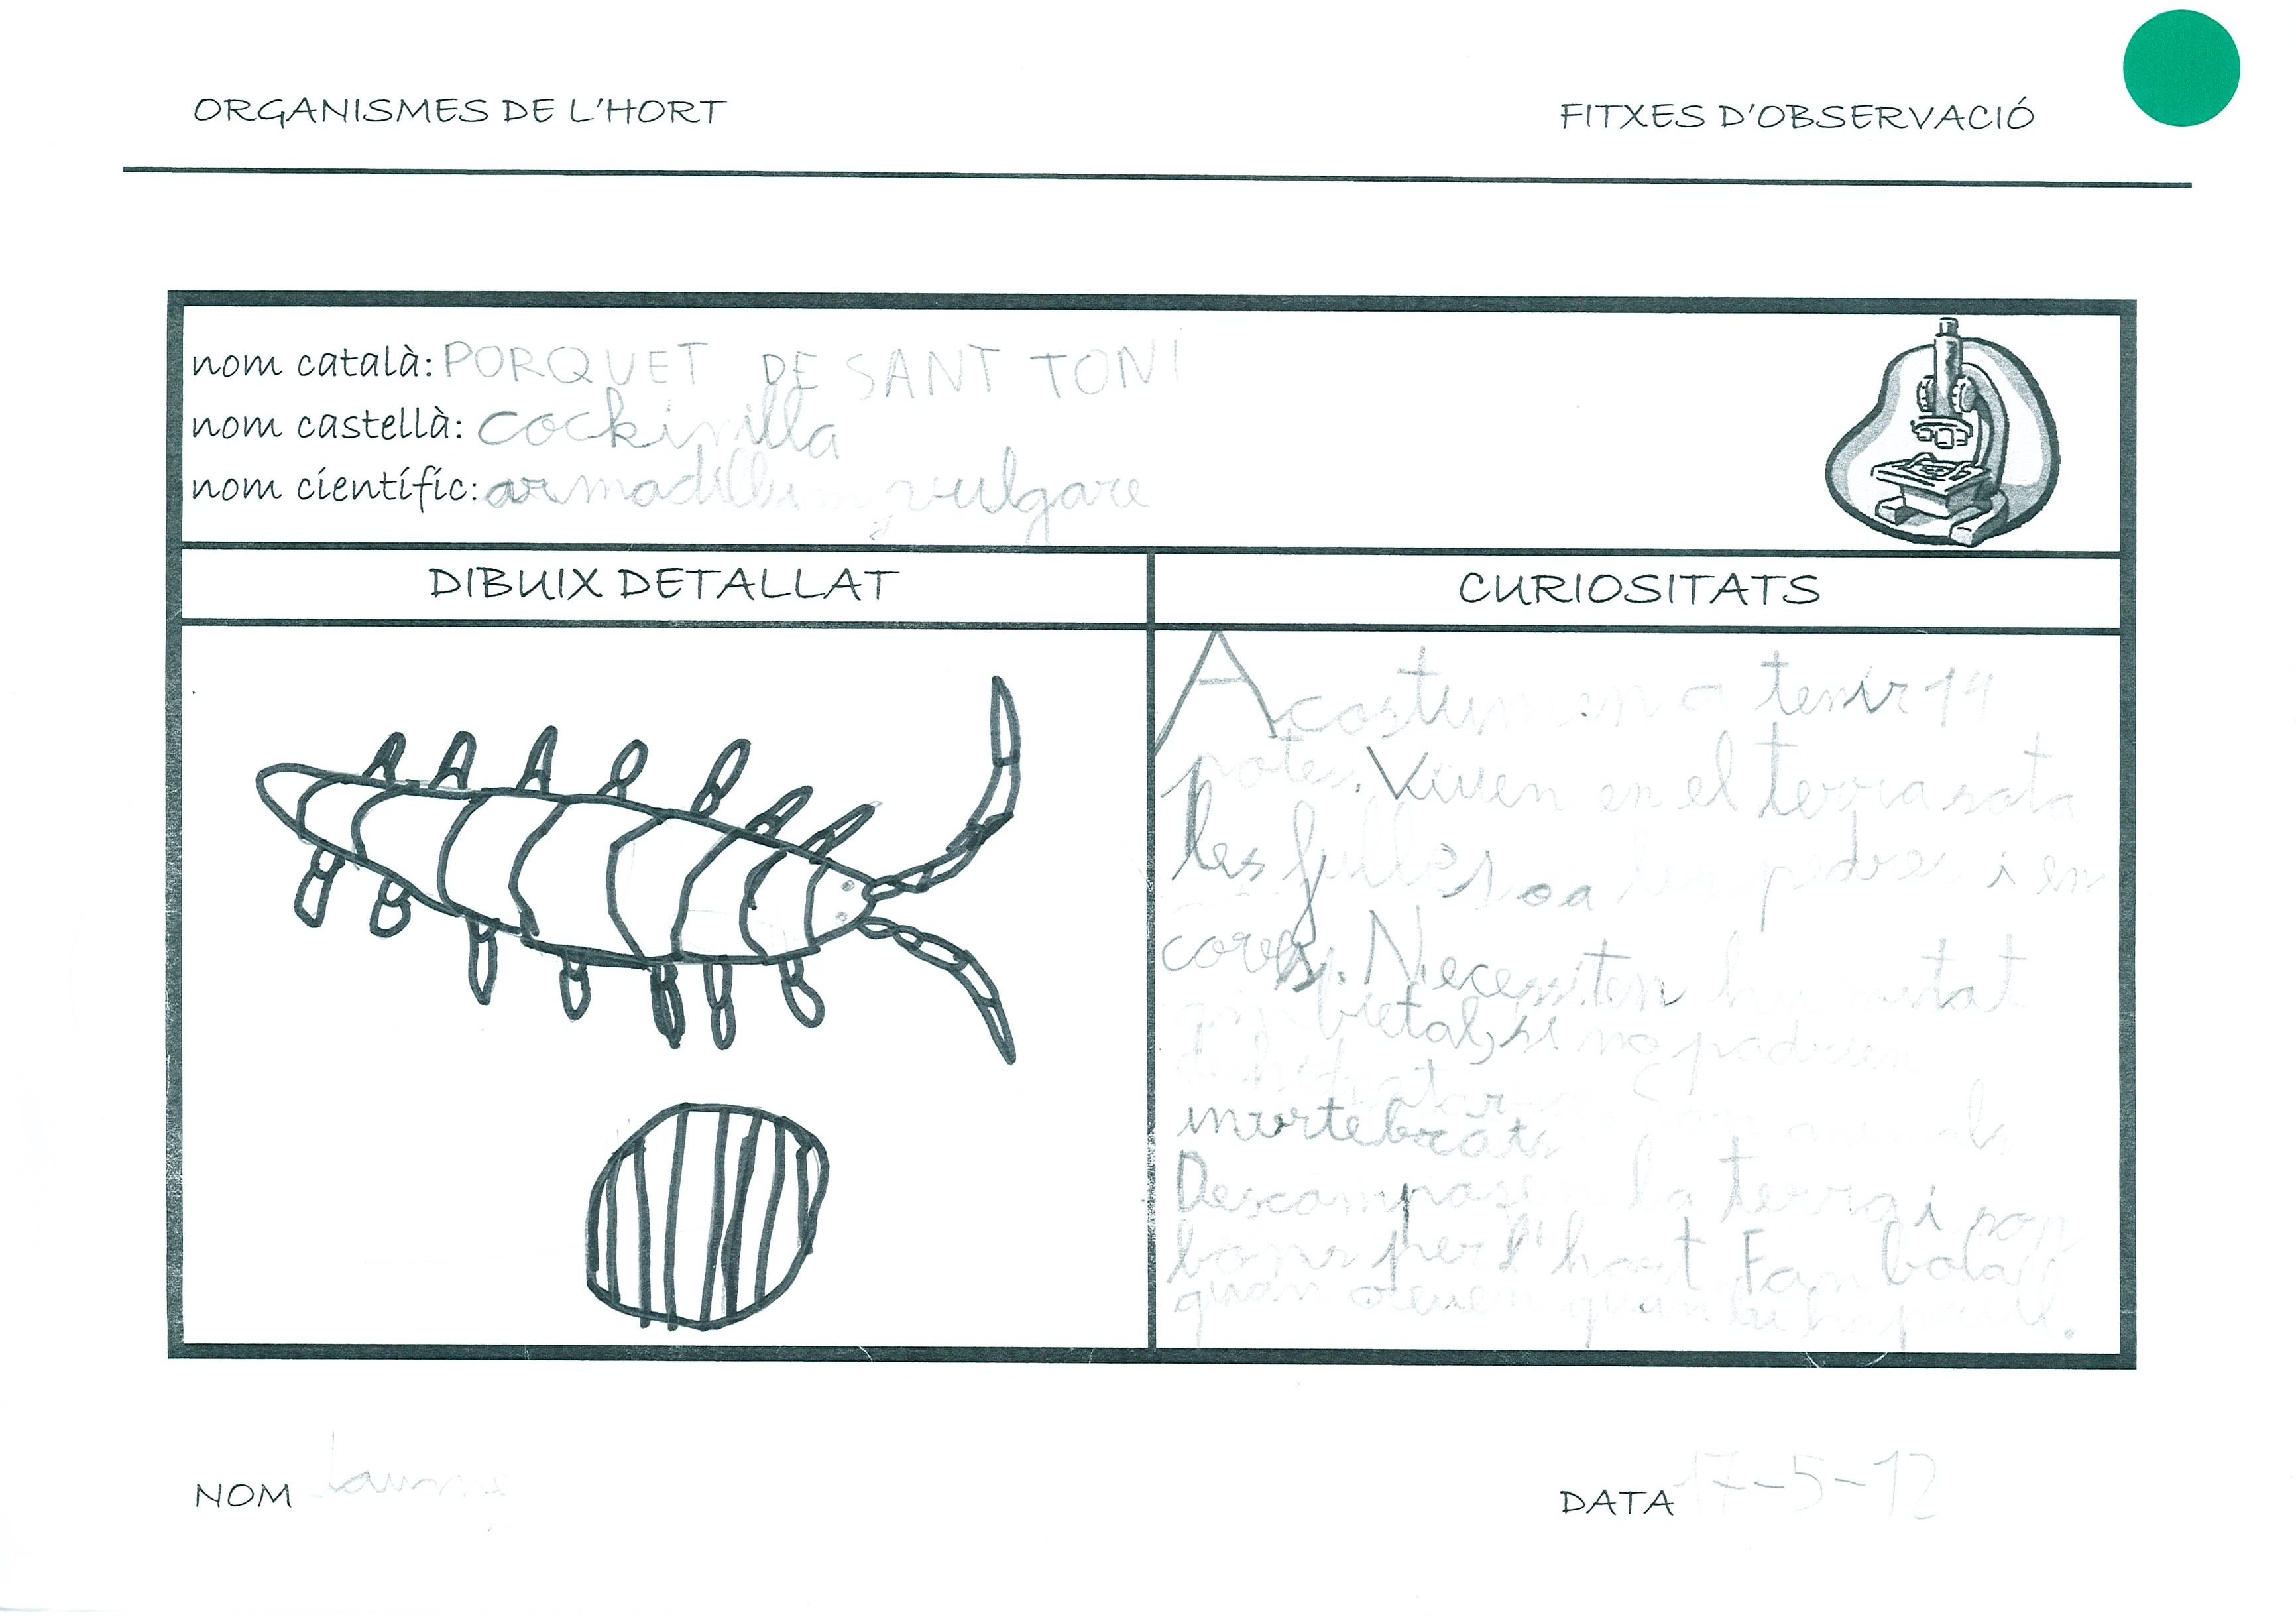 ORGANISMES DE L'HORT
FITXES D'OBSERVACIÓ
nom català: PORQUET DE SANT TONI
nom castellà: cockinilla
nom científic: armadillium vulgare
DIBUIX DETALLAT
CURIOSITATS
Acostumen a tenir 14
potes. Viuen en el terra sota
les fulles o a les pedres i en
coves. Necessiten humitat
ambiental, si no podrien
invertebrats
Descomposen la terra i son
bons per l'hort. Fan bola
quan
NOM Jaume
DATA 17-5-12